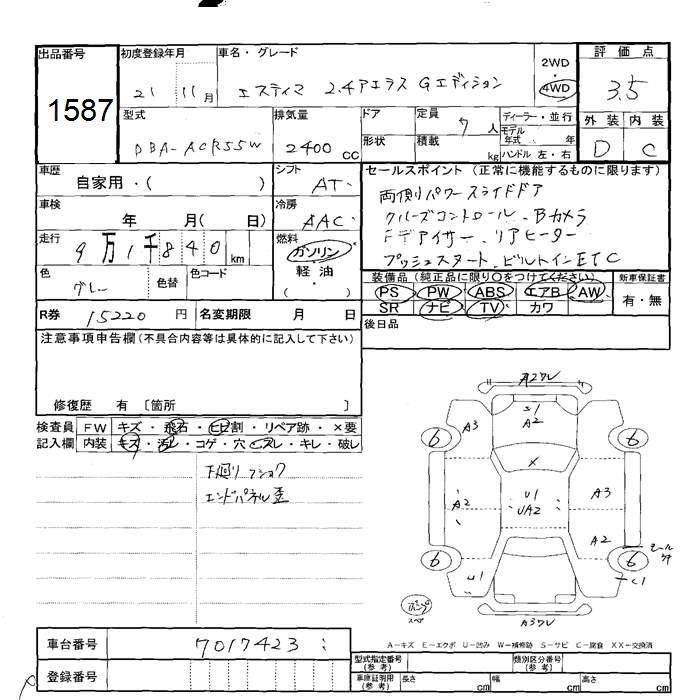 出品番号 初度登録年月 車名・グレード 2WD 評価点
1587 21 11月 エスティマ 2.4アエラス Gエディション 4WD 3.5
型式 排気量 ドア 定員 7人 ディーラー・並行 外装 内装
DBA-ACR55W 2400cc 形状 積載 kg モデル年式 年 ハンドル 左・右 D C
車歴 シフト セールスポイント (正常に機能するものに限ります)
自家用・( ) AT 両側パワースライドドア
車検 年 月( 日) 冷房 AAC クルーズコントロール、Bカメラ
走行 9万1千840km 燃料 ガソリン リアヒーター
色 グレー 色替 色コード 軽油・( ) プッシュスタート、ビルトインETC
装備品(純正品に限り○をつけてください) 新車保証書
PS PW ABS エアB AW 有・無
SR ナビ TV カワ
R券 15220円 名変期限 月 日 後日品
注意事項申告欄(不具合内容等は具体的に記入して下さい)
修復歴 有 〔箇所 〕
検査員 FW キズ・飛石・ヒビ割・リペア跡・×要
記入欄 内装 キズ・汚レ・コゲ・穴・スレ・キレ・破レ
下廻り
エンドパネル歪
A2ワレ
A3 A2
6 6
×
A2 U1 A3
UA2
A2
6 6
U1 C1
スペア A3ワレ
車台番号 7017423
A-キズ E-エクボ U-凹み W-補修跡 S-サビ C-腐食 XX-交換済
登録番号 型式指定番号(参考) 類別区分番号(参考)
車庫証明用(参考) 長さ cm 幅 cm 高さ cm